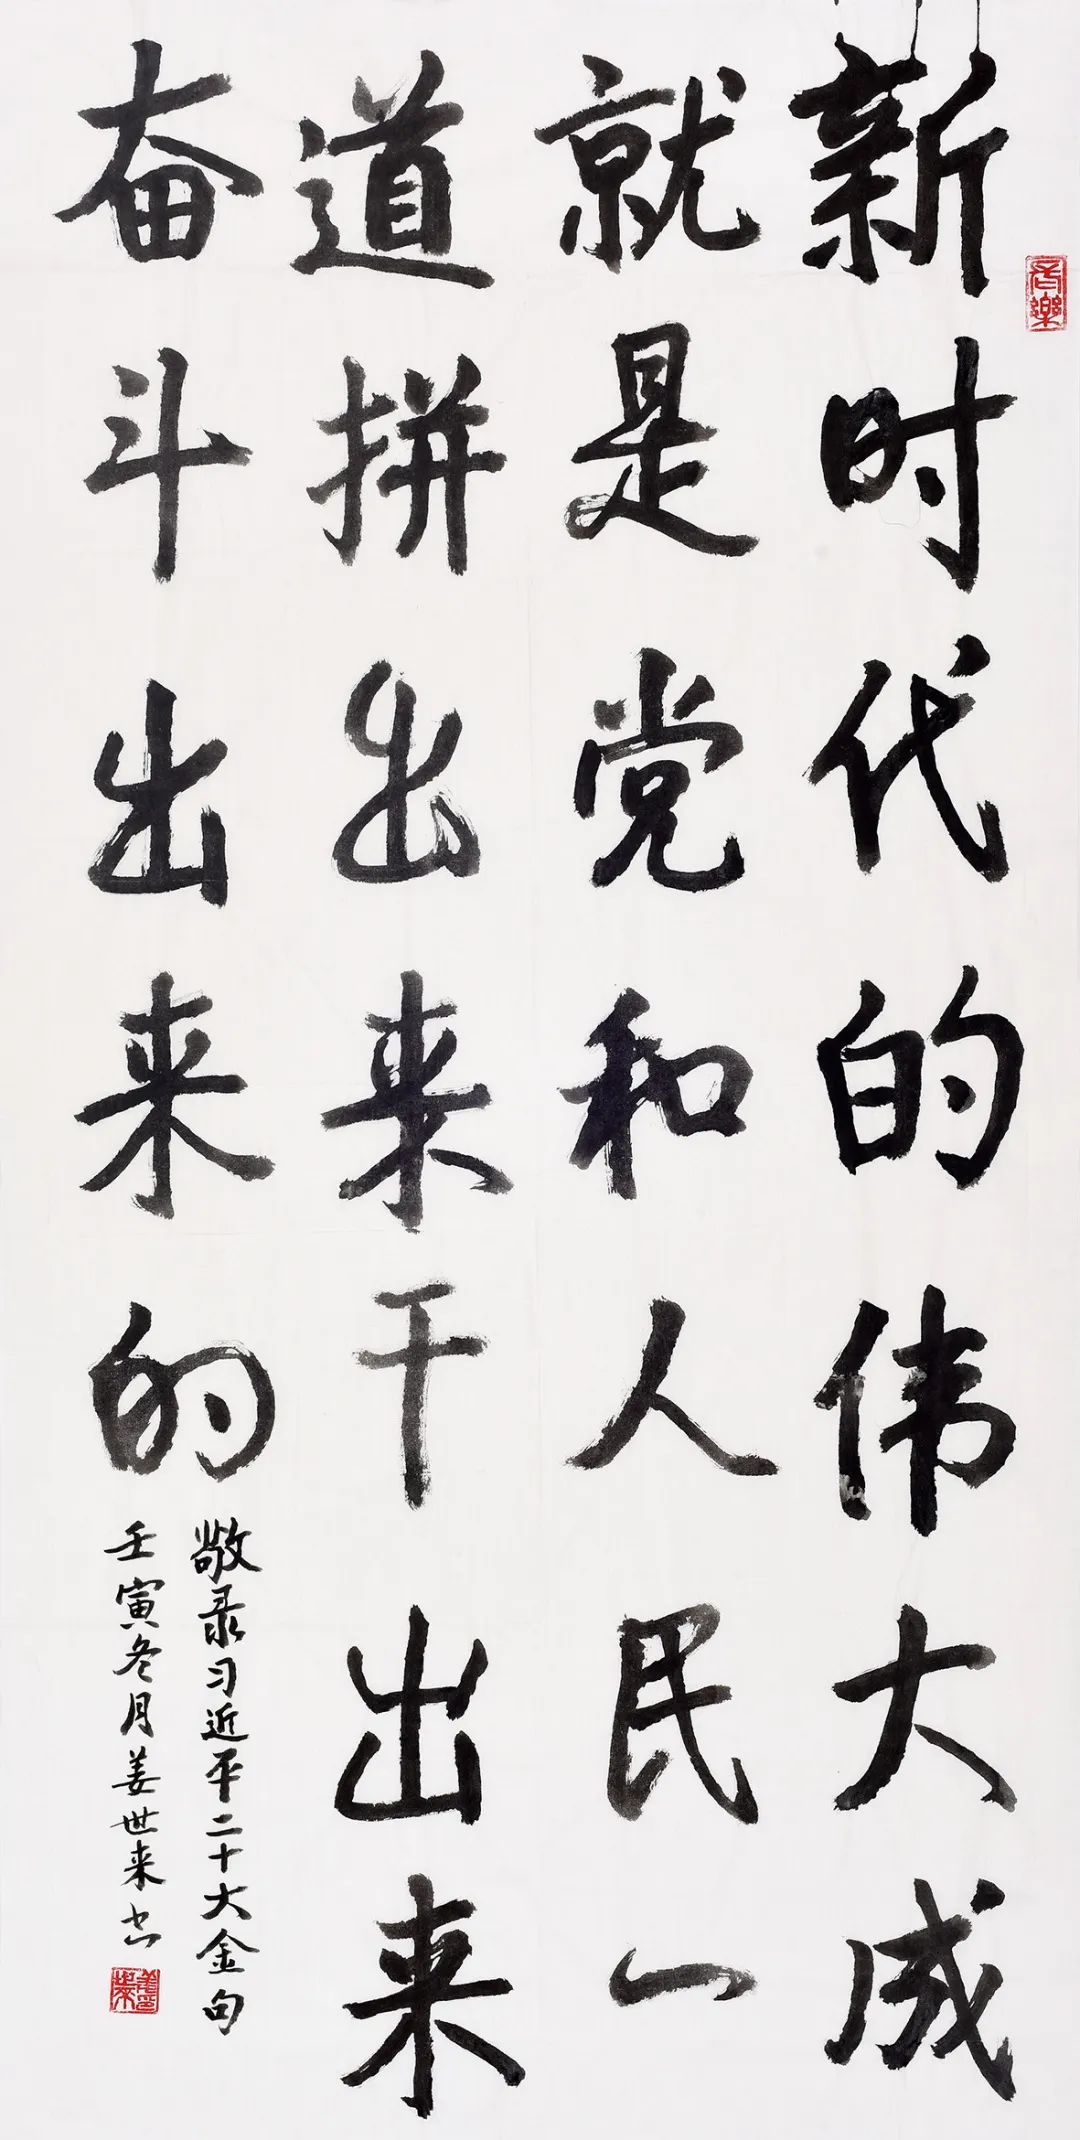 新时代的伟大成
就是党和人民一
道拼出来干出来
奋斗出来的
敬录习近平二十大金句
壬寅冬月姜世来书